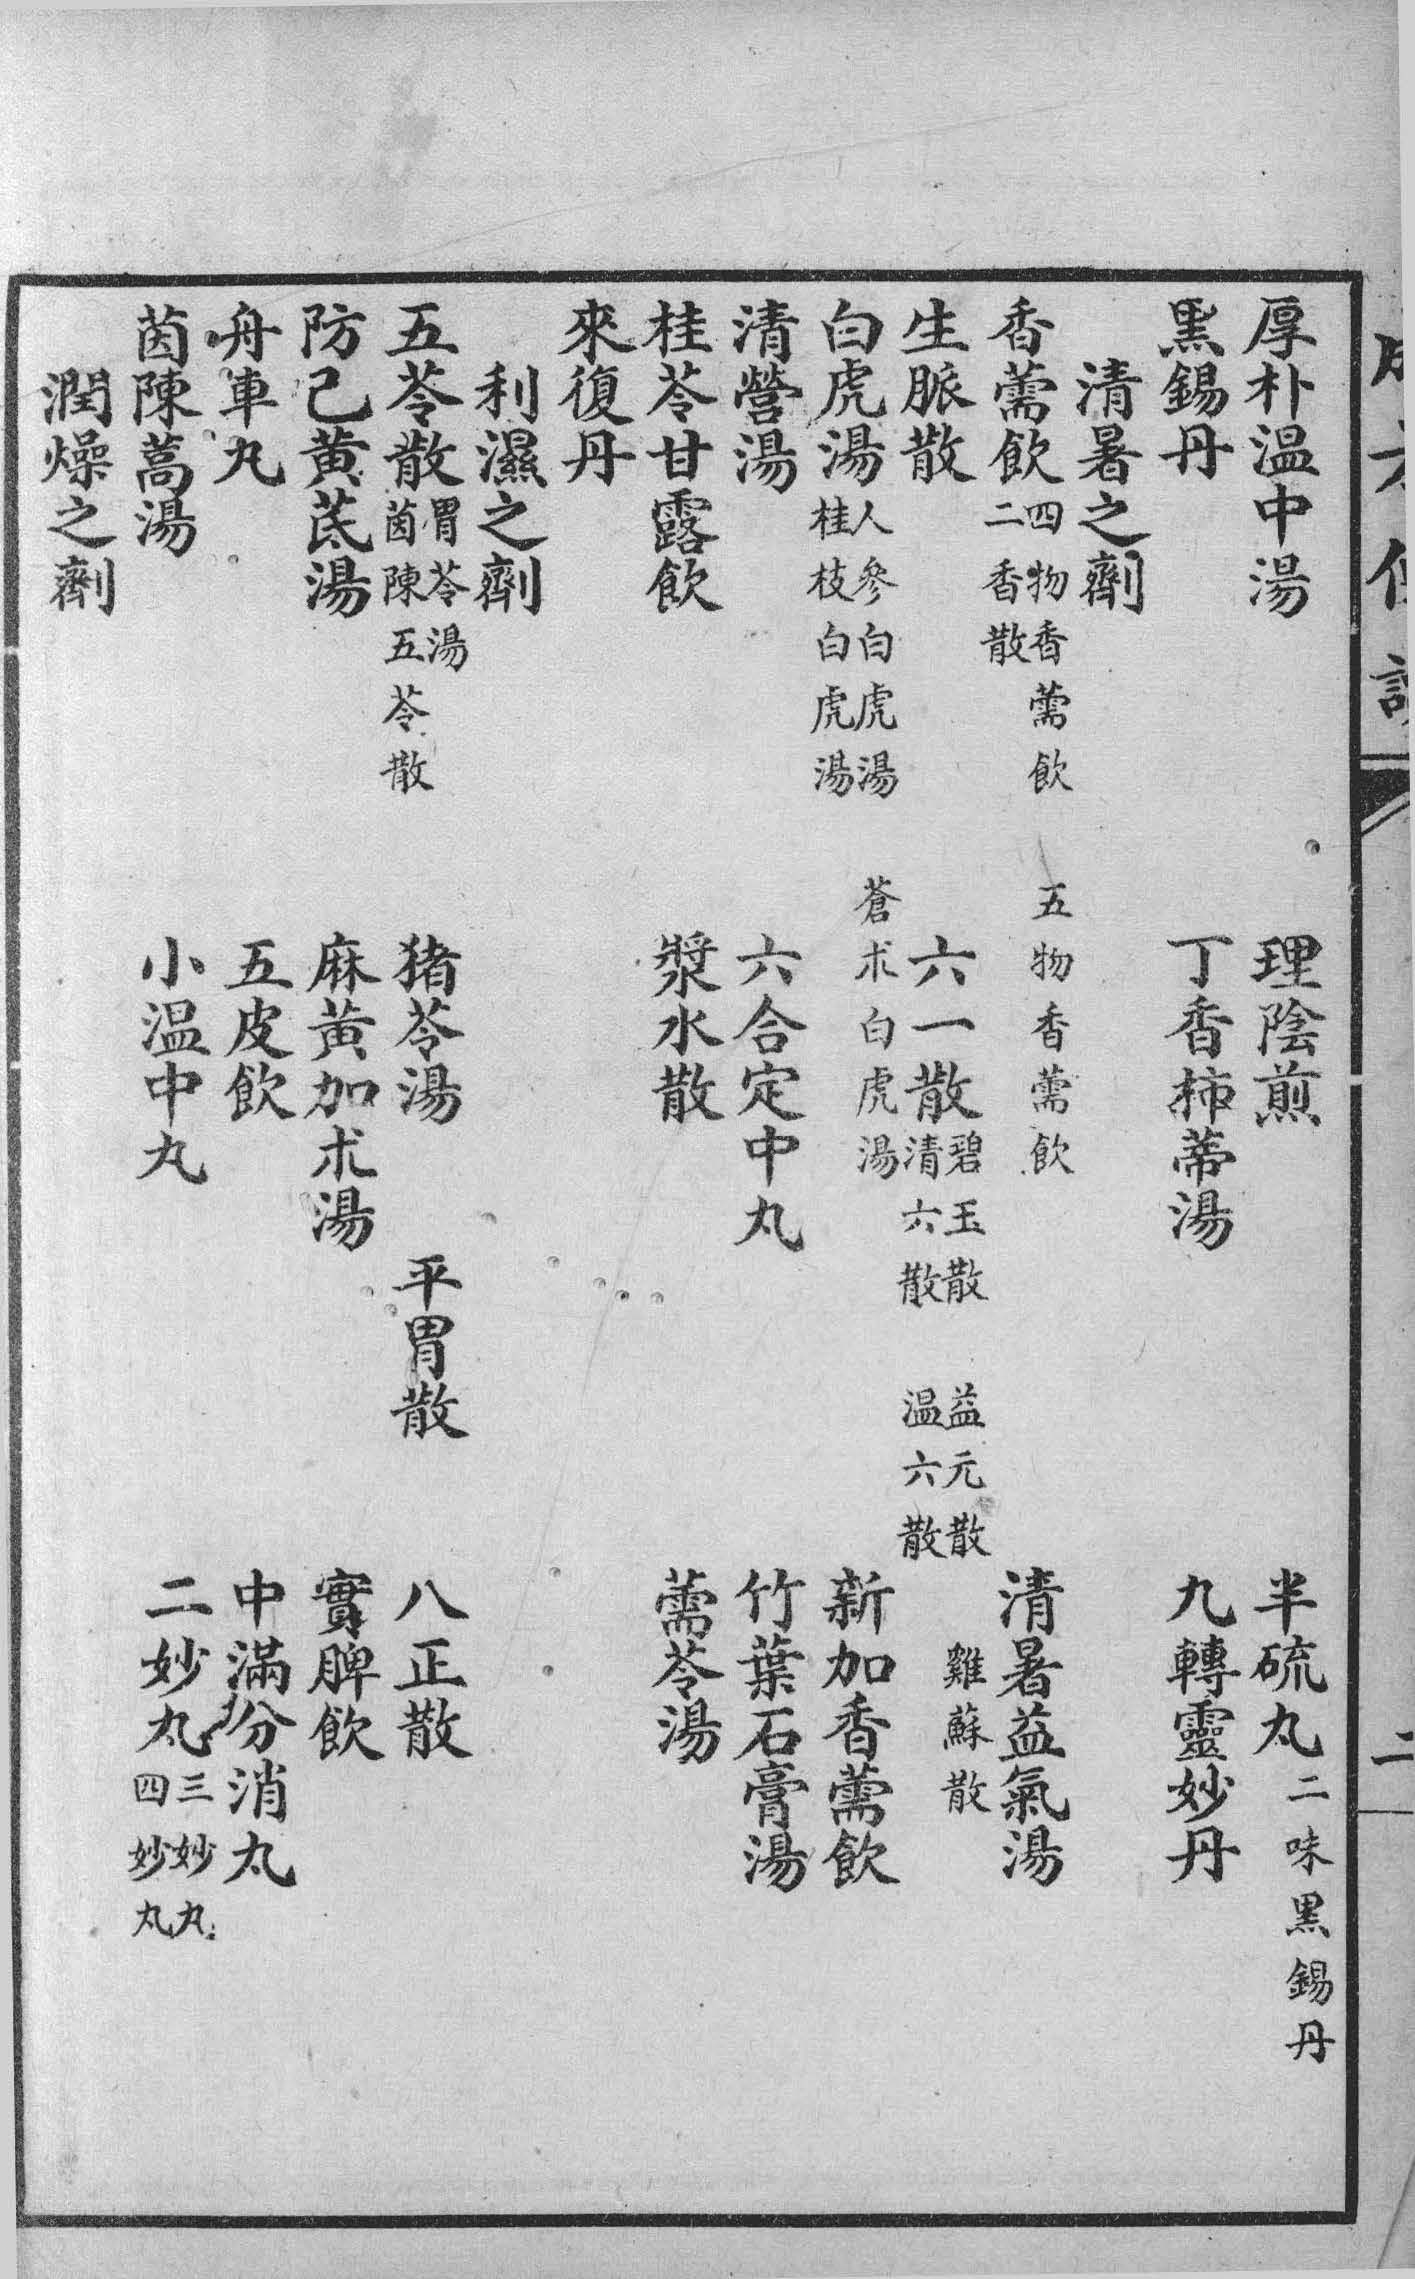 厚朴温中湯　理陰煎　半硫丸 二味黑錫丹
黑錫丹　丁香柿蒂湯　九轉靈妙丹
清暑之劑
香薷飲 四物香薷飲　五物香薷飲　二香散　清暑益氣湯
生脈散　六一散 碧玉散　益元散　雞蘇散　清六散　温六散
白虎湯 人參白虎湯　蒼朮白虎湯　桂枝白虎湯　新加香薷飲
清營湯　六合定中丸　竹葉石膏湯
桂苓甘露飲　漿水散　薷苓湯
來復丹
利濕之劑
五苓散 胃苓湯　茵陳五苓散　猪苓湯　平胃散　八正散
防己黃芪湯　麻黃加朮湯　實脾飲
舟車丸　五皮飲　中滿分消丸
茵陳蒿湯　小温中丸　二妙丸 三妙丸　四妙丸
潤燥之劑
二